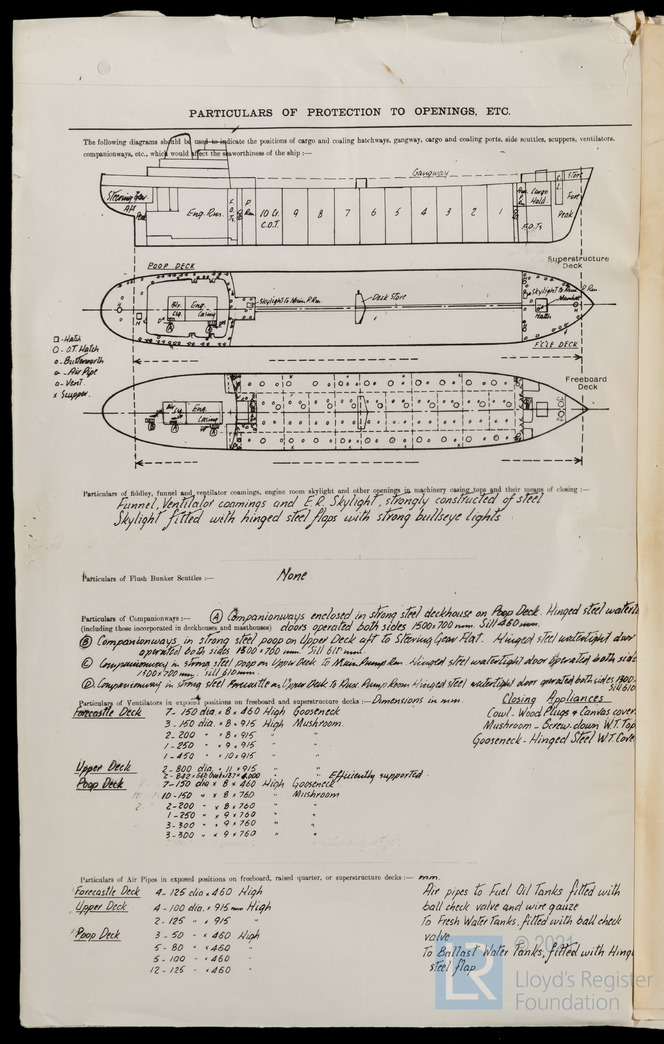 PARTICULARS OF PROTECTION TO OPENINGS, ETC.
The following diagrams should be used to indicate the positions of cargo and coaling hatchways, gangway, cargo and coaling ports, side scuttles, scuppers, ventilators,
companionways, etc., which would affect the seaworthiness of the ship :—
Gangway
Steering Gear
Aft
Peak
Eng. Rm.
10 Cr.
C.O.T.
9 8 7 6 5 4 3 2 1
Cargo
Hold
F.O.Ts
Store
Fore
Peak
POOP DECK
Superstructure
Deck
Eng.
Casing
Skylight to Main P. Rm
Deck Store
Hatch
F'C'LE DECK
□ - Hatch
O - O.T. Hatch
o - Butterworth
o - Air Pipe
o - Vent.
x Scupper.
Freeboard
Deck
Eng.
Casing
Particulars of fiddley, funnel and ventilator coamings, engine room skylight and other openings in machinery casing tops and their means of closing :—
Funnel, Ventilator coamings and E.R. Skylight, strongly constructed of steel
Skylight fitted with hinged steel flaps with strong bullseye lights
Particulars of Flush Bunker Scuttles :— None
Particulars of Companionways :— (A) Companionways enclosed in strong steel deckhouse on Poop Deck. Hinged steel
(including those incorporated in deckhouses and masthouses) doors operated both sides 1500 x 700 mm Sill 460 mm.
(B) Companionways in strong steel poop on Upper Deck aft to Steering Gear Flat. Hinged steel watertight door
operated both sides 1300 x 700 mm. Sill 610 mm.
(C) Companionway in strong steel poop on Upper Deck to Main Pump Rm Hinged steel watertight door operated both side
1300 x 700 mm. sill 610 mm.
(D) Companionway in strong steel Forecastle on Upper Deck to Aux. Pump Room Hinged steel watertight door operated both sides 1300
Sill 610
Particulars of Ventilators in exposed positions on freeboard and superstructure decks :— Dimensions in mm.
Closing Appliances
Cowl - Wood Plugs & Canvas cover
Mushroom - Screw-down W.T. Top
Gooseneck - Hinged Steel W.T. Cove
Forecastle Deck 7 - 150 dia. x 8 x 460 High Gooseneck
3 - 150 dia. x 8 x 915 High Mushroom.
2 - 200 " x 8 x 915 " "
1 - 250 " x 9 x 915 " "
1 - 450 " x 10 x 915 " "
Upper Deck 2 - 800 dia. x 11 x 915 "
Efficiently supported.
Poop Deck 7 - 150 dia x 8 x 460 High Gooseneck
10 - 150 " x 8 x 760 " Mushroom
2 - 200 " x 8 x 760 " "
1 - 250 " x 9 x 760 " "
3 - 300 " x 9 x 760 " "
3 - 300 " x 9 x 760 " "
Particulars of Air Pipes in exposed positions on freeboard, raised quarter, or superstructure decks :— mm.
Forecastle Deck 4 - 125 dia x 460 High
Upper Deck 4 - 100 dia. x 915 mm High
2 - 125 " x 915 "
Poop Deck 3 - 50 " x 460 High
5 - 80 " x 460 "
5 - 100 " x 460 "
12 - 125 " x 460 "
Air pipes to Fuel Oil Tanks fitted with
ball check valve and wire gauze
To Fresh Water Tanks, fitted with ball check
valve
To Ballast Water Tanks, fitted with Hing
steel flap
© 2021
LR
Lloyd's Register
Foundation